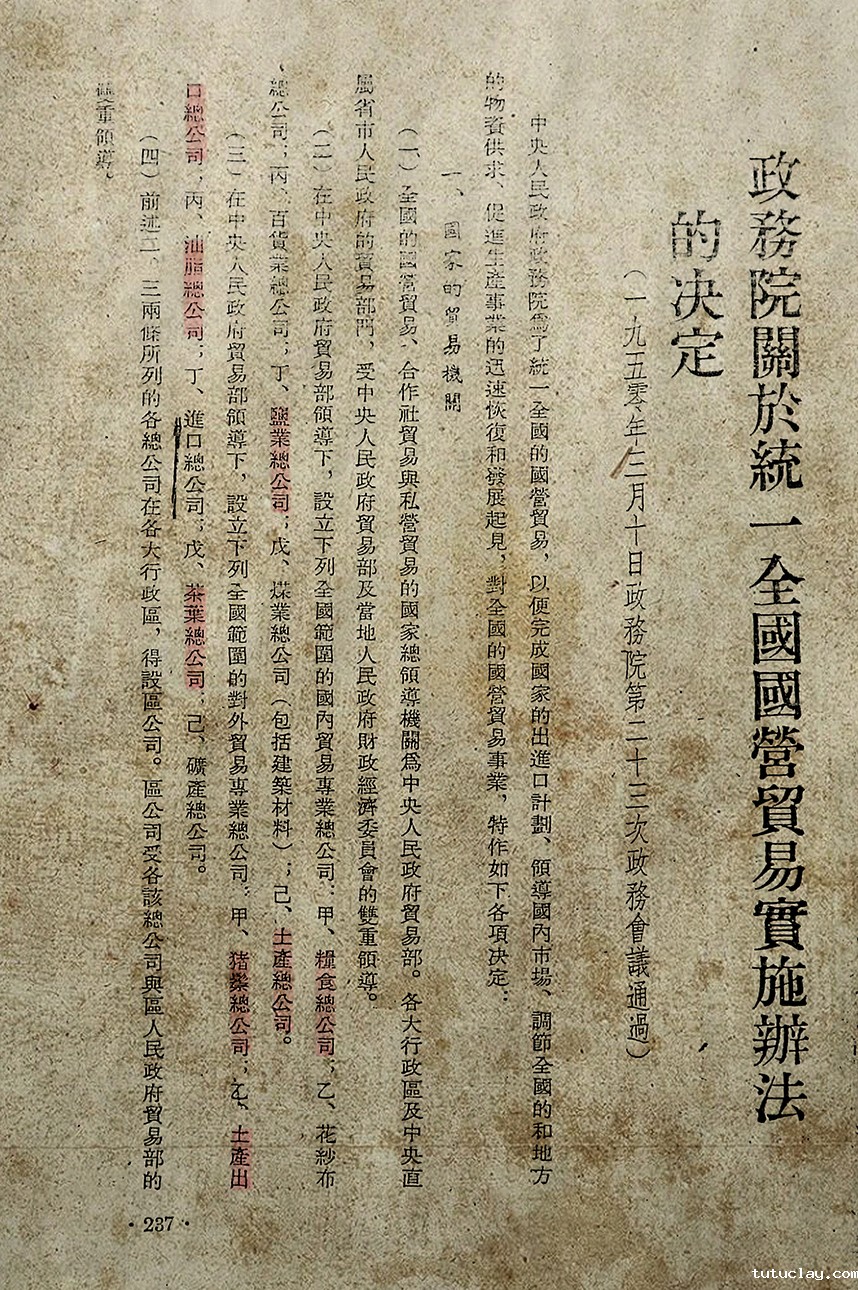 政務院關於統一全國國營貿易實施辦法
的决定
（一九五零年三月十日政務院第二十三次政務會議通過）
中央人民政府政務院爲了統一全國的國營貿易，以便完成國家的出進口計劃、領導國內市場、調節全國的和地方
的物資供求、促進生產事業的迅速恢復和發展起見，對全國的國營貿易事業，特作如下各項决定：
一、國家的貿易機關
（一）全國的國營貿易、合作社貿易與私營貿易的國家總領導機關爲中央人民政府貿易部。各大行政區及中央直
屬省市人民政府的貿易部門，受中央人民政府貿易部及當地人民政府財政經濟委員會的雙重領導。
（二）在中央人民政府貿易部領導下，設立下列全國範圍的國內貿易專業總公司：甲、糧食總公司；乙、花紗布
總公司；丙、百貨業總公司；丁、鹽業總公司；戊、煤業總公司（包括建築材料）；己、土產總公司。
（三）在中央人民政府貿易部領導下，設立下列全國範圍的對外貿易專業總公司：甲、猪鬃總公司；乙、土產出
口總公司；丙、油脂總公司；丁、進口總公司；戊、茶葉總公司；己、礦產總公司。
（四）前述二、三兩條所列的各總公司在各大行政區，得設區公司。區公司受各該總公司與區人民政府貿易部的
雙重領導。
·237·
tutuclay.com